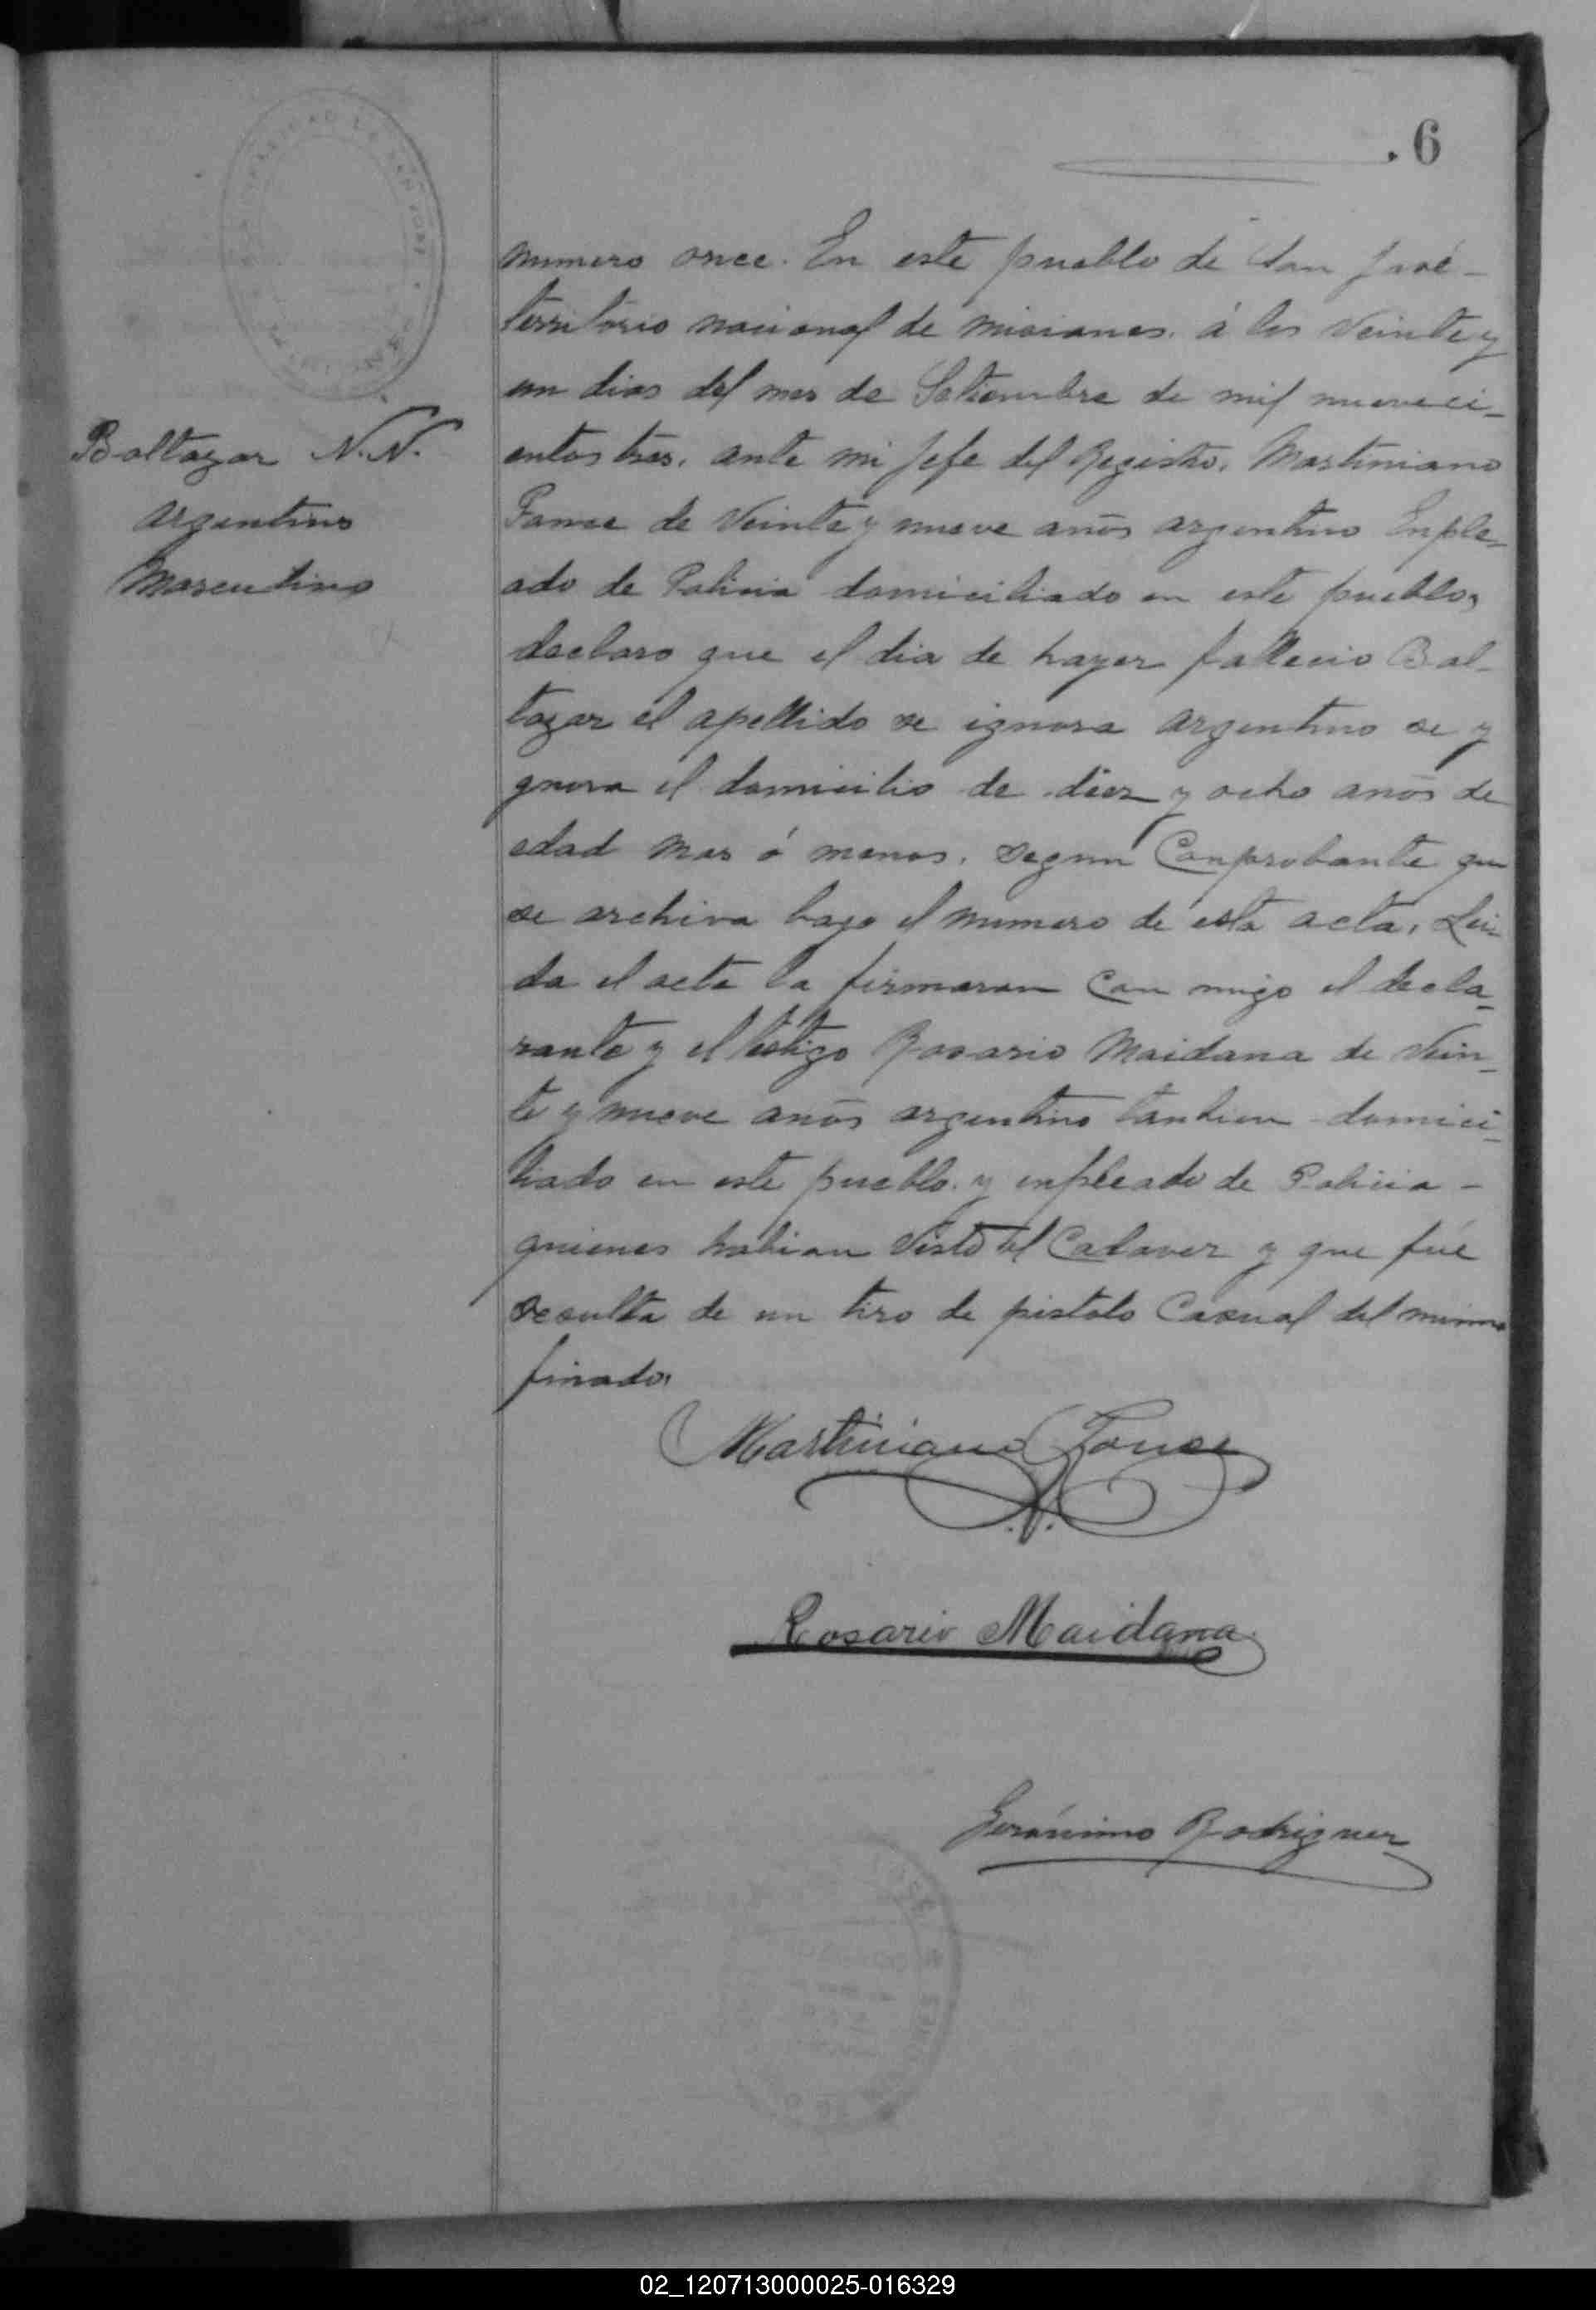 . 6
Baltazar N.N.
argentino
Masculino
numero once. En este pueblo de San José -
territorio nacional de misiones. á los Veinte y
un dias del mes de Setiembre de mil nueveci-
entos tres. ante mi Jefe del Registro. Martiniano
Ponce de Veinte y nueve años argentino Enple-
ado de Policia domiciliado en este pueblo,
declaro que el dia de hayer fallecio Bal-
tazar el apellido se ignora argentino se y
gnora el domicilio de diez y ocho años de
edad mas ó menos. segun Conprobante que
se archiva bajo el numero de esta acta. Lei-
da el acta la firmaron Con migo el decla-
rante y el testigo Rosario Maidana de Vein-
te y nueve años argentino tanbien domici-
liado en este pueblo. y enpleado de Policia -
quienes habian Visto el Cadaver y que fué
resulta de un tiro de pistola Casual del mismo
finado.
Martiniano Ponce
Rosario Maidana
Gerónimo Rodriguez
02_120713000025-016329